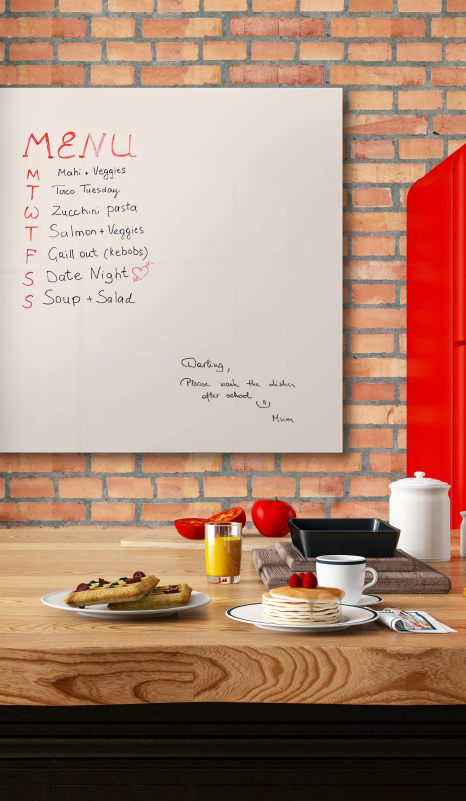 MENU
M Mahi + Veggies
T Taco Tuesday
W Zucchini pasta
T Salmon + Veggies
F Grill out (kebobs)
S Date Night
S Soup + Salad
Darling,
Please wash the dishes
after school
Mum